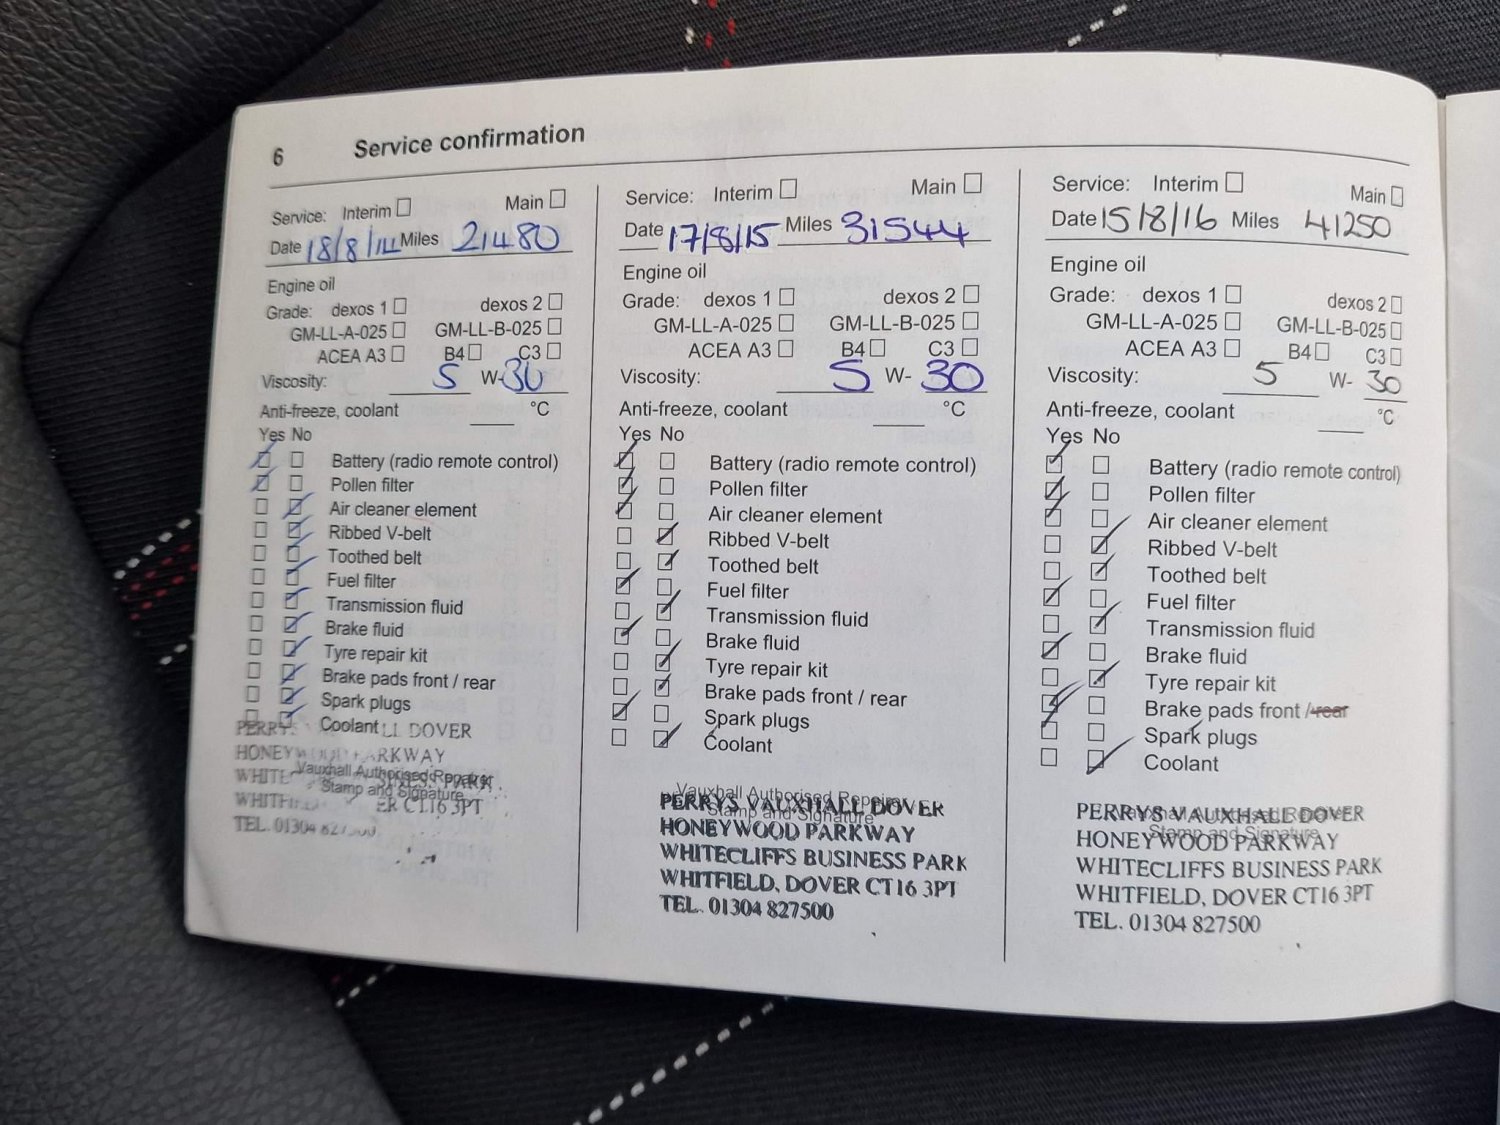 6 Service confirmation
Service: Interim Main
Date 18/8/14 Miles 21480
Engine oil
Grade: dexos 1 dexos 2
GM-LL-A-025 GM-LL-B-025
ACEA A3 B4 C3
Viscosity: 5 W-30
Anti-freeze, coolant °C
Yes No
Battery (radio remote control)
Pollen filter
Air cleaner element
Ribbed V-belt
Toothed belt
Fuel filter
Transmission fluid
Brake fluid
Tyre repair kit
Brake pads front / rear
Spark plugs
Coolant
PERRYS LL DOVER
HONEYWOOD PARKWAY
Vauxhall Authorised Repairer
Stamp and Signature
WHITE SINESS PARK
WHITFI ER CT16 3PT
TEL. 01304 827500
Service: Interim Main
Date 17/8/15 Miles 31544
Engine oil
Grade: dexos 1 dexos 2
GM-LL-A-025 GM-LL-B-025
ACEA A3 B4 C3
Viscosity: 5 W- 30
Anti-freeze, coolant °C
Yes No
Battery (radio remote control)
Pollen filter
Air cleaner element
Ribbed V-belt
Toothed belt
Fuel filter
Transmission fluid
Brake fluid
Tyre repair kit
Brake pads front / rear
Spark plugs
Coolant
Vauxhall Authorised Repairer
Stamp and Signature
PERRYS VAUXHALL DOVER
HONEYWOOD PARKWAY
WHITECLIFFS BUSINESS PARK
WHITFIELD, DOVER CT16 3PT
TEL. 01304 827500
Service: Interim Main
Date 15/8/16 Miles 41250
Engine oil
Grade: dexos 1 dexos 2
GM-LL-A-025 GM-LL-B-025
ACEA A3 B4 C3
Viscosity: 5 W- 30
Anti-freeze, coolant °C
Yes No
Battery (radio remote control)
Pollen filter
Air cleaner element
Ribbed V-belt
Toothed belt
Fuel filter
Transmission fluid
Brake fluid
Tyre repair kit
Brake pads front / rear
Spark plugs
Coolant
Vauxhall Authorised Repairer
Stamp and Signature
PERRYS VAUXHALL DOVER
HONEYWOOD PARKWAY
WHITECLIFFS BUSINESS PARK
WHITFIELD, DOVER CT16 3PT
TEL. 01304 827500